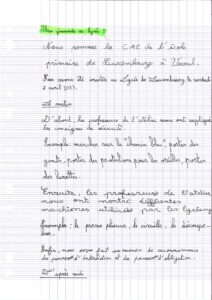 Une journée au lycée :
Nous sommes la CM2 de l'école
primaire de Luxembourg à Vesoul.
Nous avons été invités au Lycée de Luxembourg le vendredi
7 avril 2023.
Le matin
D'abord, les professeurs de l'atelier nous ont expliqué
les consignes de sécurité.
Exemple: marcher sur le "chemin bleu", porter des
gants, porter des protections pour les oreilles, porter
des lunettes.
Ensuite, les professeurs de l'atelier
nous ont montré différentes
machines utilisées par les lycéens
Exemples: la presse plieuse, la cisaille, la
Enfin, nous avons fait un exercice de reconnaissance
de panneaux d'interdiction et de panneaux d'obligation.
après midi